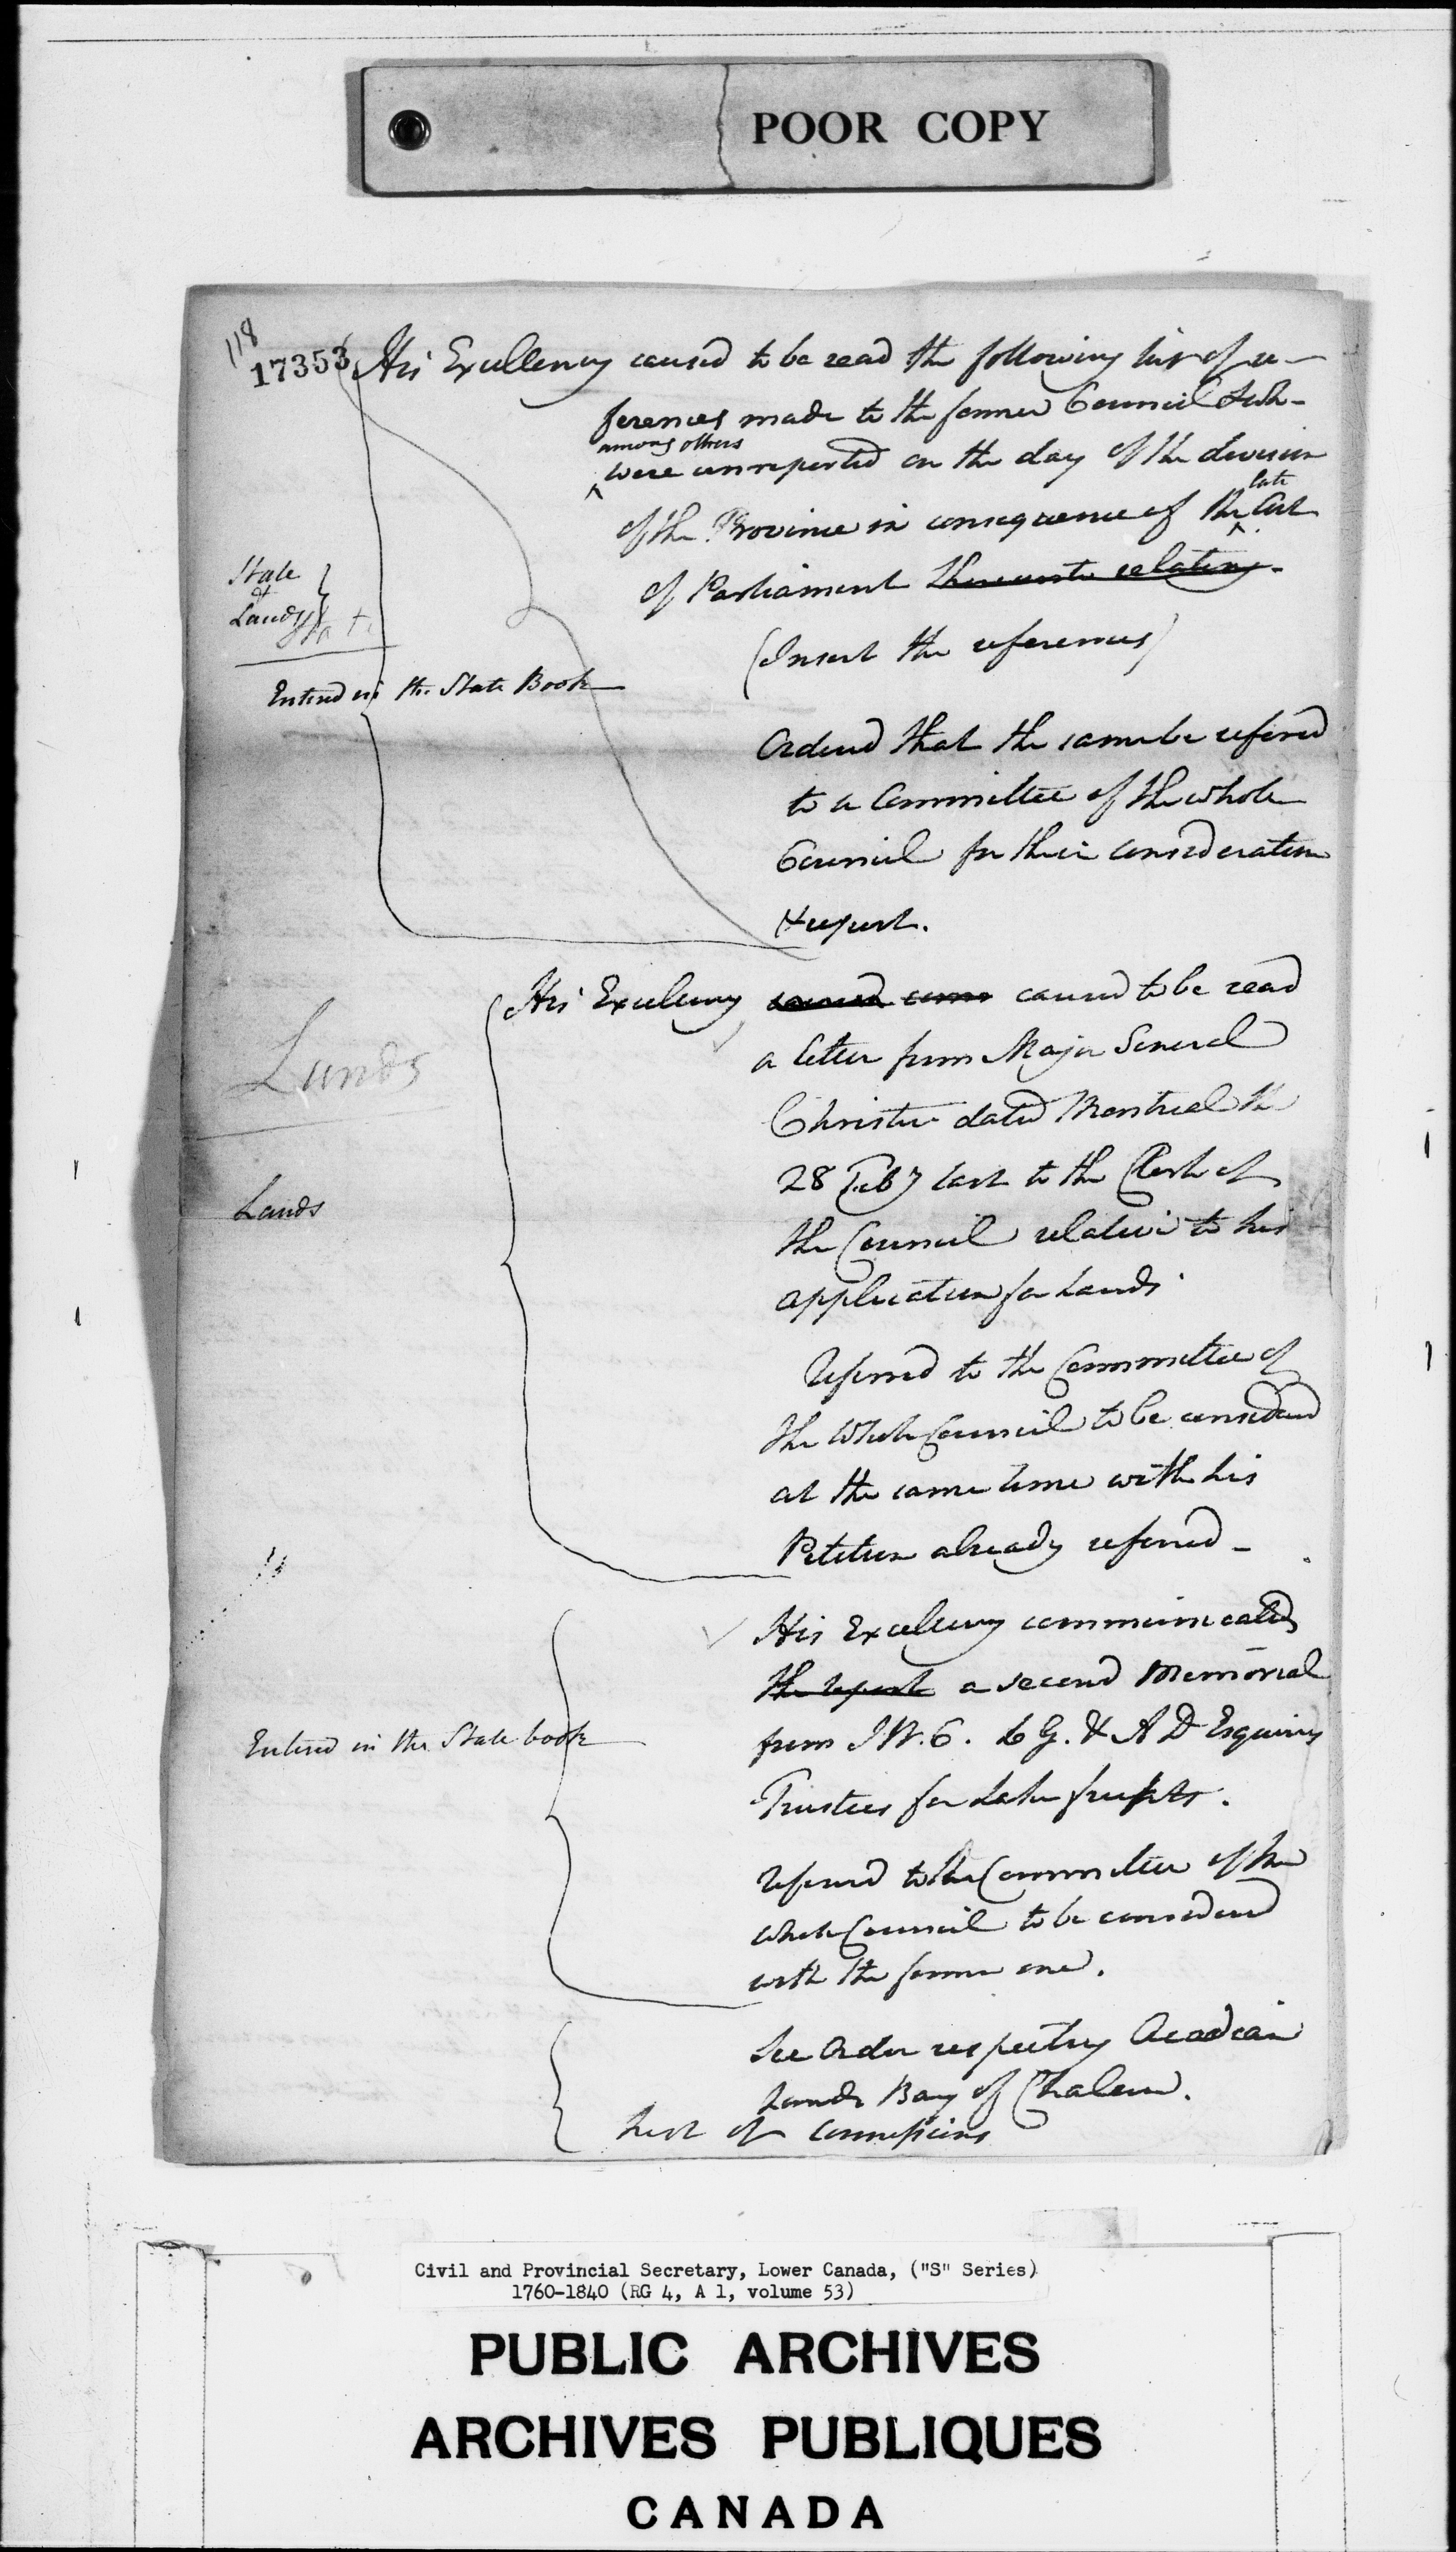 POOR COPY
118
17353
His Excellency caused to be read the following list of re-
ferences made to the former Council which
among others
were unreported on the day of the division
late
of the Province in consequence of the Act
of Parliament thereunto relating.
State
&
Lands
(Insert the references)
Entered in the State Book
Ordered that the same be refered
to a Committee of the whole
Council for their consideration
& report.
His Excellency caused to be read
a letter from Major General
Lands
Christie dated Montreal the
28 Feby last to the Clerk of
Lands
the Council relative to his
application for Lands.
Referred to the Committee of
the whole Council to be considered
at the same time with his
Petition already referred -
His Excellency communicated
the report a second Memorial
from I W. C. L G. & A D Esquires
Entered in the State book
Trustees for
Referred to the Committee of the
whole Council to be considered
with the former one.
See Order respecting Acadian
Lands Bay of Chaleur.
List of Commissions
Civil and Provincial Secretary, Lower Canada, ("S" Series)
1760-1840 (RG 4, A 1, volume 53)
PUBLIC ARCHIVES
ARCHIVES PUBLIQUES
CANADA